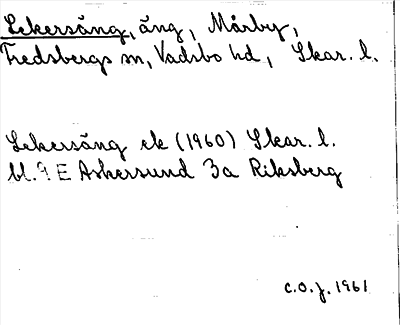 Lekersäng, äng, Mårby,
Fredsbergs sn, Vadsbo hd, Skar. l.
Lekersäng ek (1960) Skar. l.
bl. 9 E Askersund 3a Riksberg
C.O.J. 1961